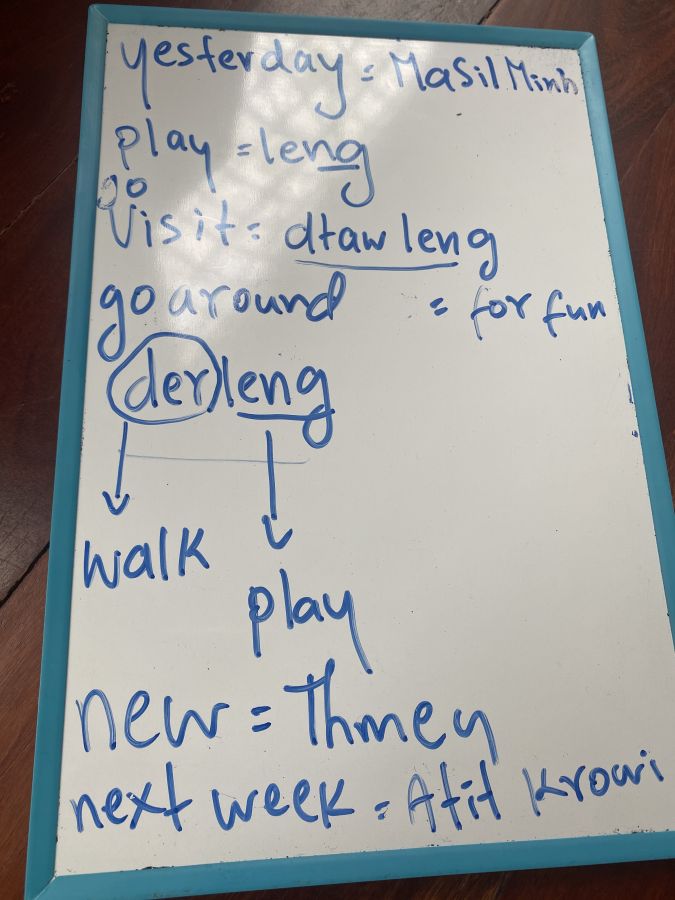 yesterday = Masil Minh
play = leng
go
Visit = dtaw leng
go around = for fun
der leng
walk
play
new = Thmey
next week = Atit Krowi